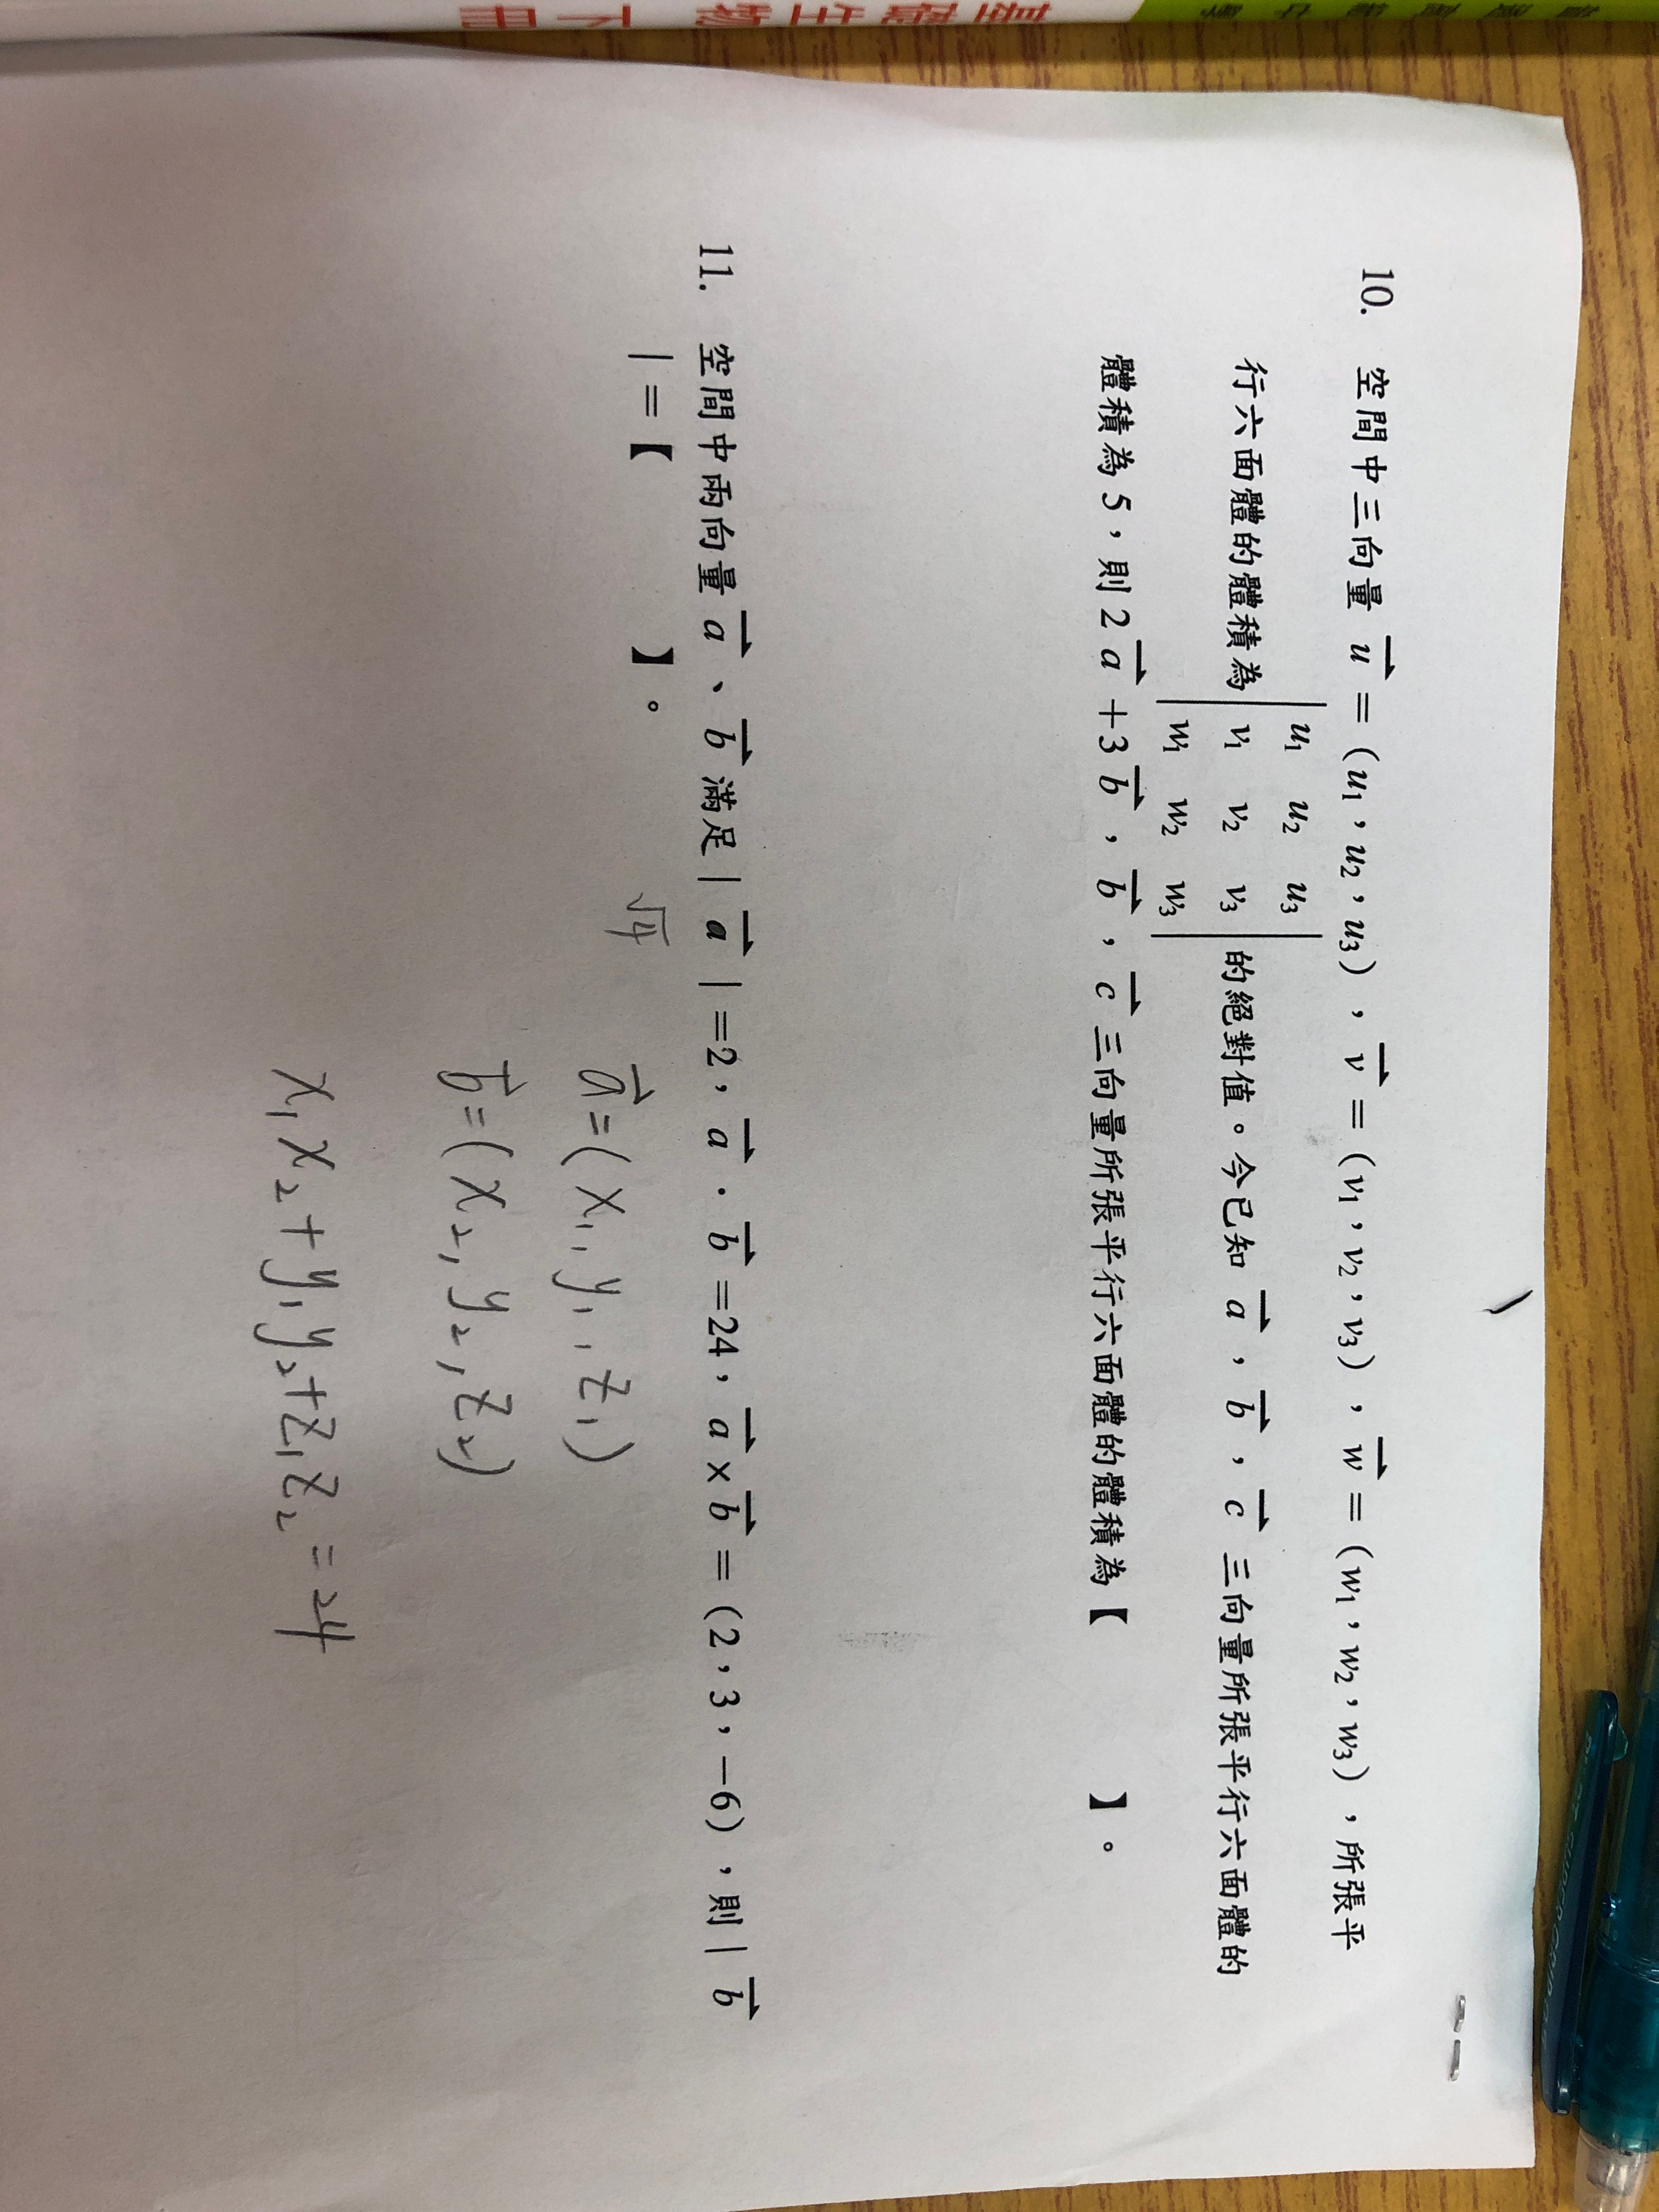 基礎生物 下冊
10. 空間中三向量 u = (u1,u2,u3),v = (v1,v2,v3),w = (w1,w2,w3),所張平
行六面體的體積為 | u1 u2 u3 |
| v1 v2 v3 | 的絕對值。今已知 a,b,c 三向量所張平行六面體的
| w1 w2 w3 |
體積為 5,則 2a+3b,b,c 三向量所張平行六面體的體積為【 】。
11. 空間中兩向量 a、b 滿足 | a | =2,a · b =24,a × b = (2,3,-6),則 | b
| =【 】。
√4
a=(x1,y1,z1)
b=(x2,y2,z2)
x1x2+y1y2+z1z2=24